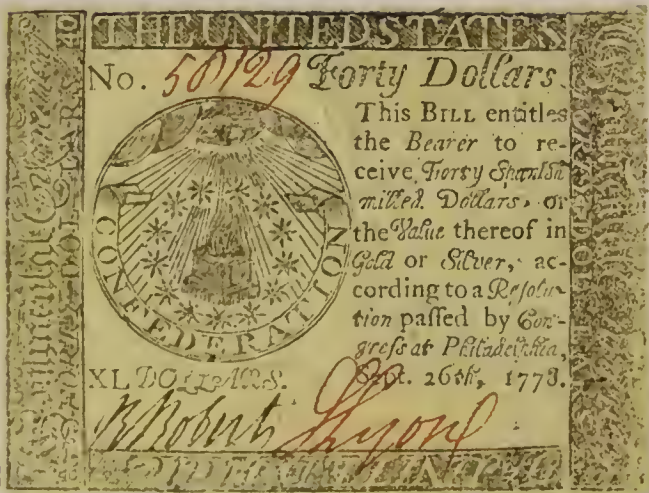 THE UNITED STATES
No. 58129 Forty Dollars.
This BILL entitles
the Bearer to re-
ceive Forty Spanish
milled Dollars, or
the Value thereof in
Gold or Silver, ac-
cording to a Resolu-
tion passed by Con-
gress at Philadelphia,
Sept. 26th, 1778.
CONFEDERATION
XL DOLLARS.
Continental Currency